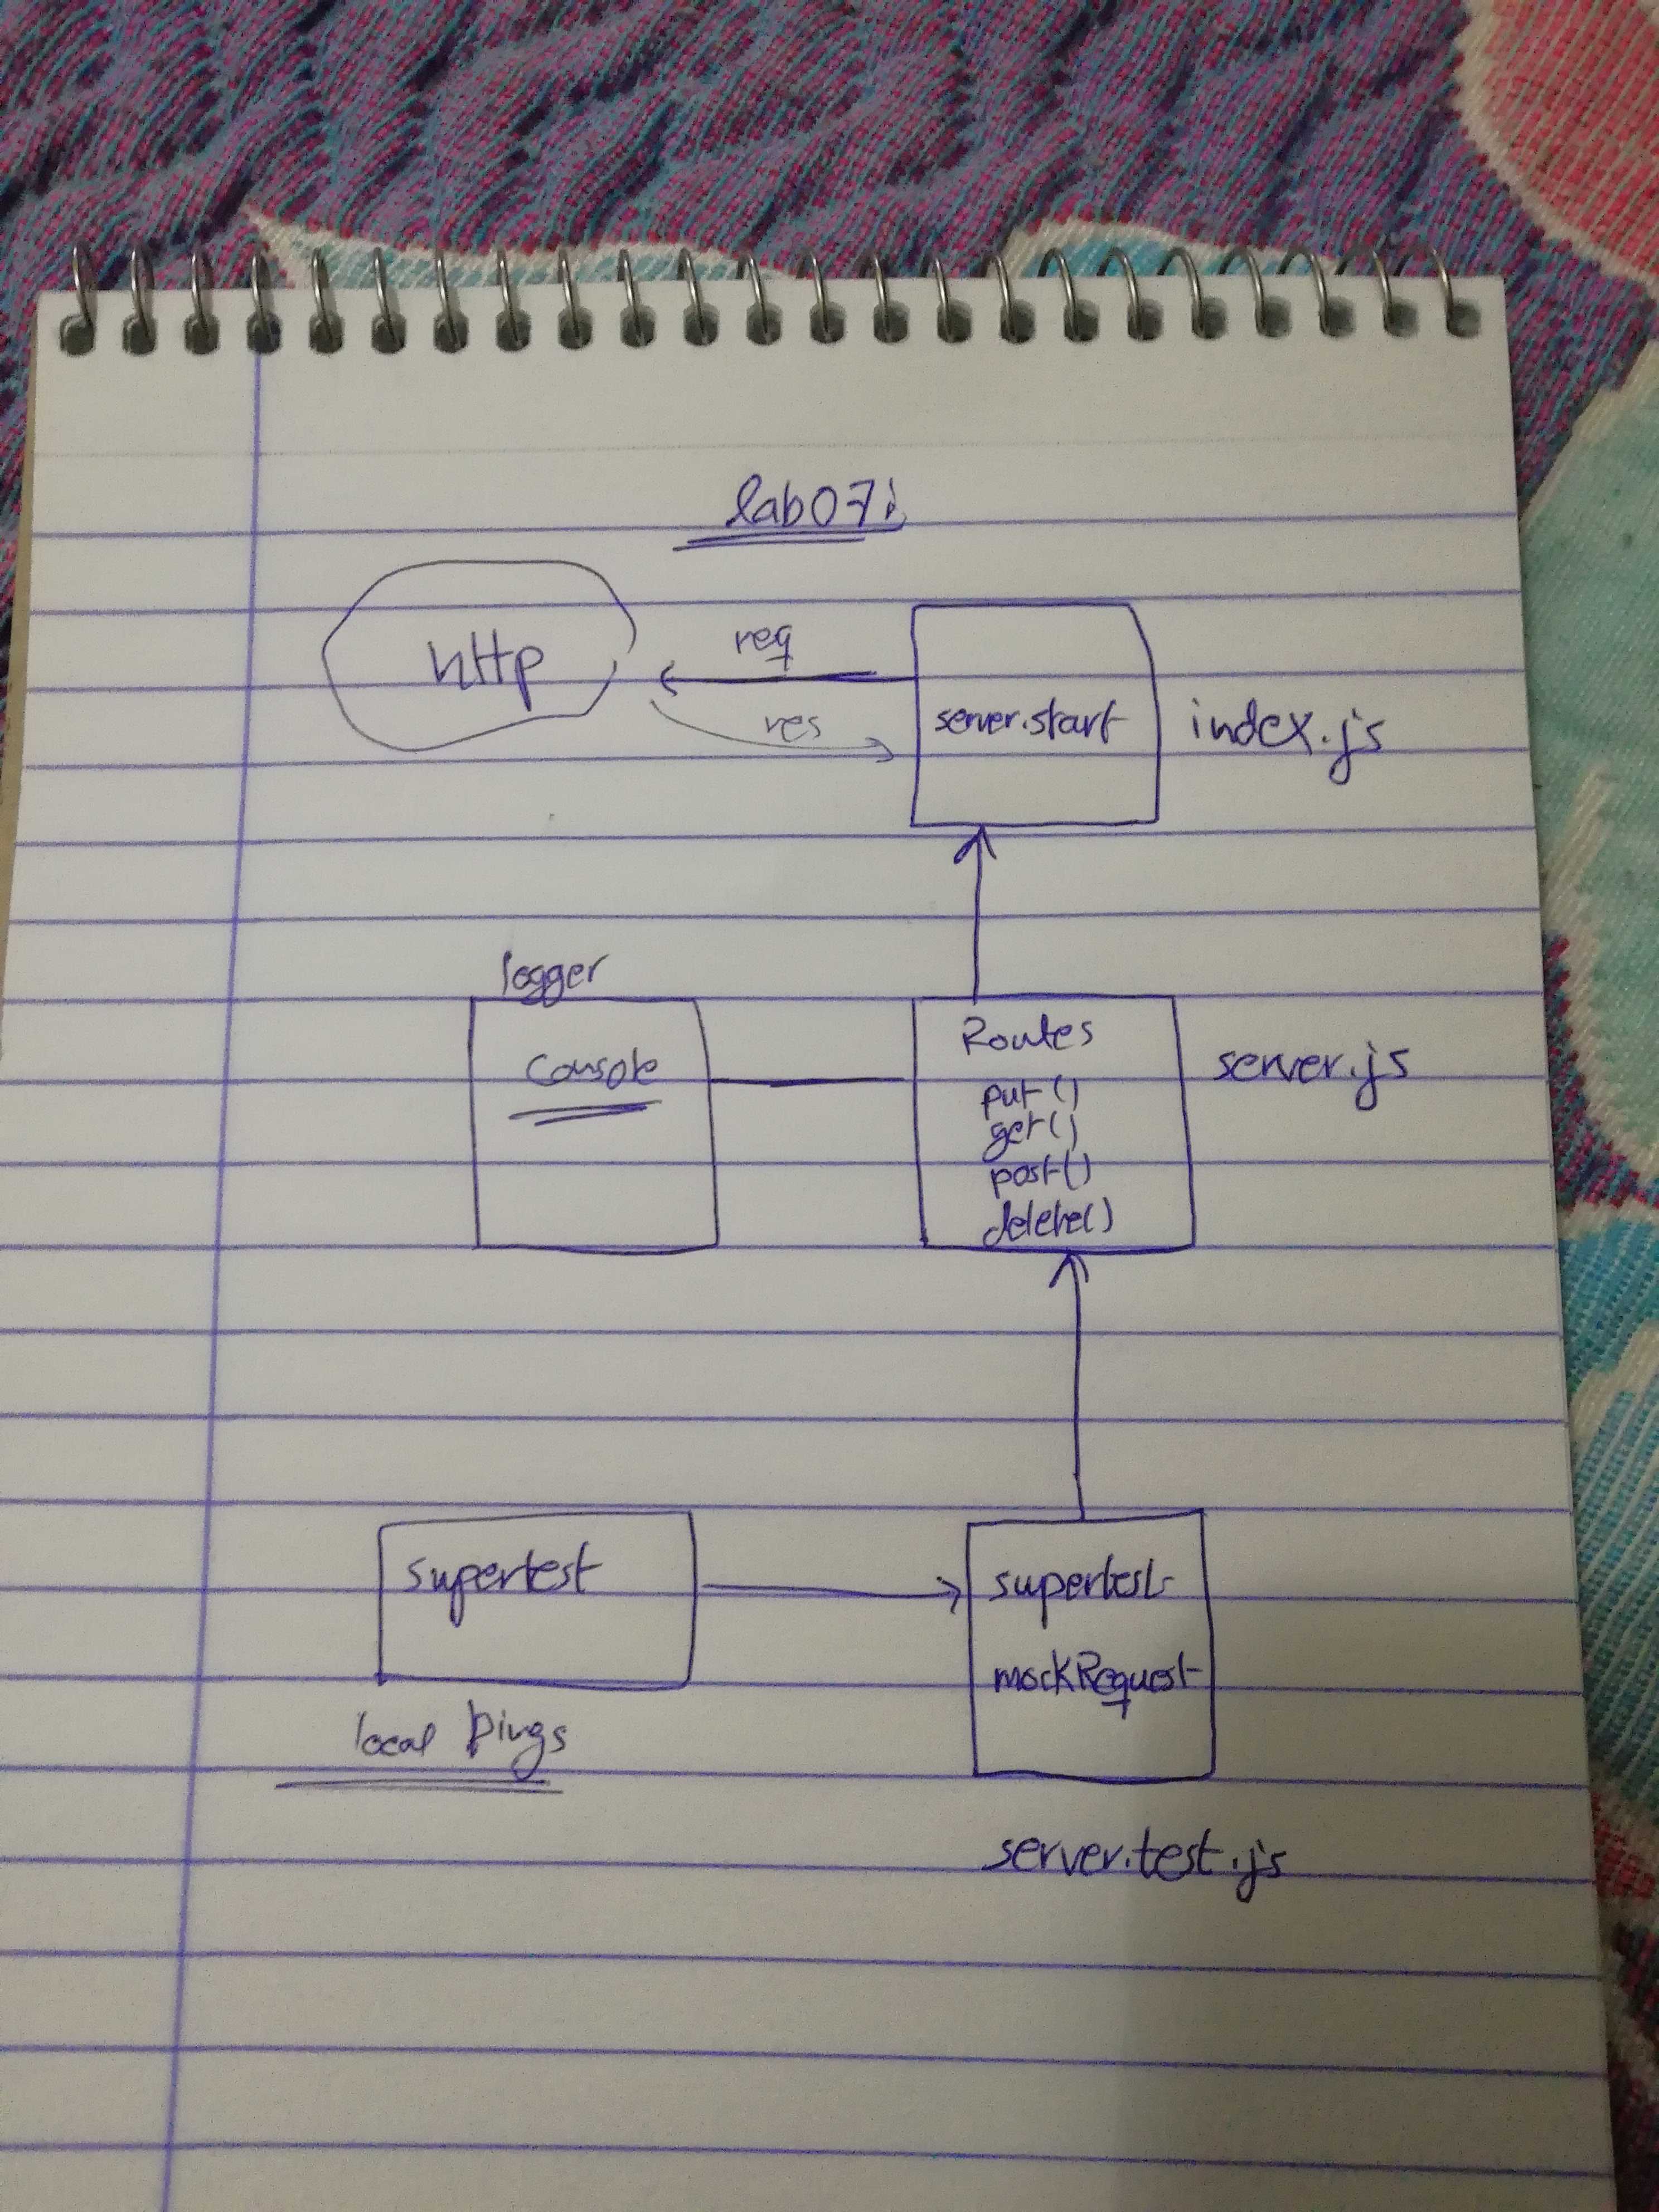 lab07
http
req
res
server.start
index.js
logger
console
Routes
put()
get()
post()
delete()
server.js
supertest
local pings
supertest
mockRequest
server.test.js